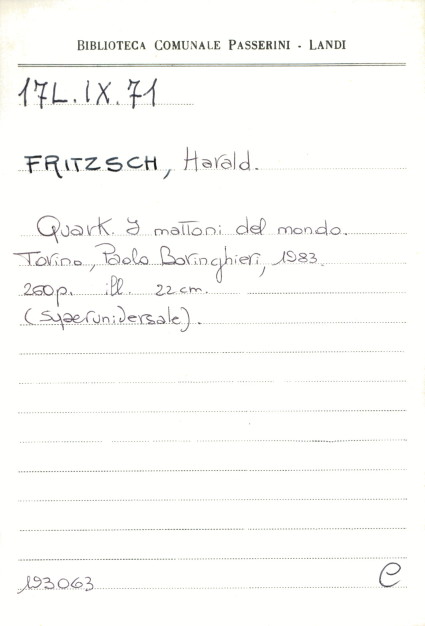 BIBLIOTECA COMUNALE PASSERINI - LANDI
17L.IX.71
FRITZSCH, Harald.
Quark. I mattoni del mondo.
Torino, Paolo Boringhieri, 1983.
260p. ill. 22 cm.
(Superuniversale).
193063 C